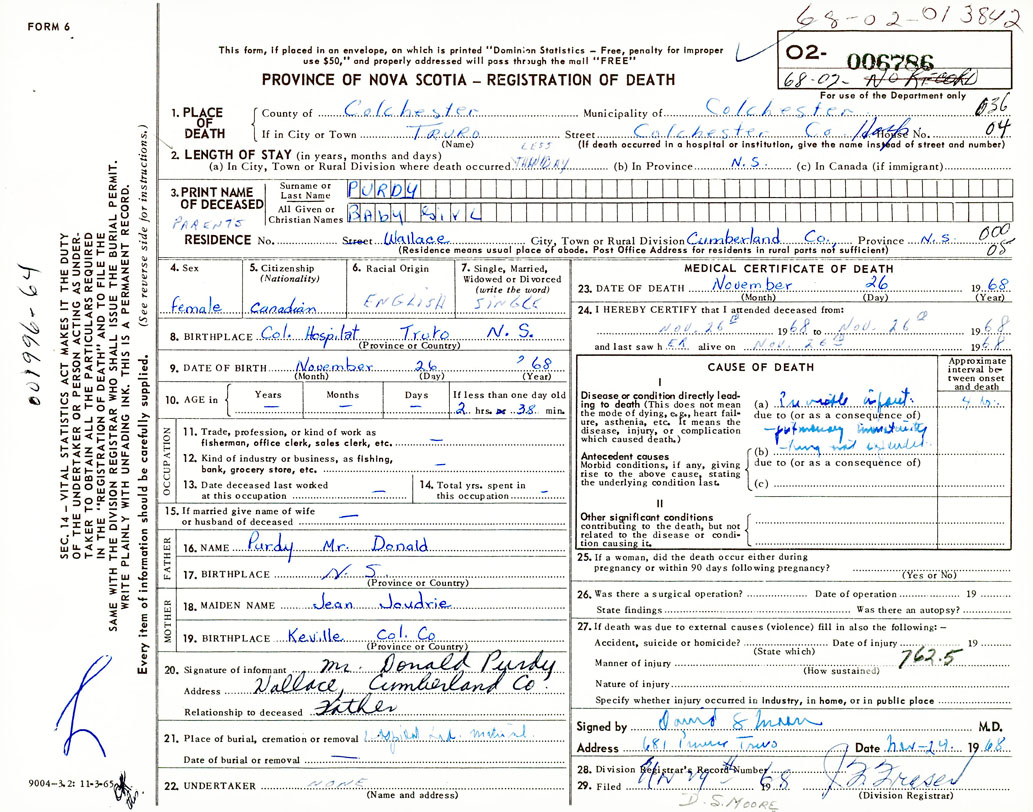 FORM 6
68-02-013842
This form, if placed in an envelope, on which is printed "Dominion Statistics – Free, penalty for improper
use $50," and properly addressed will pass through the mail "FREE"
PROVINCE OF NOVA SCOTIA – REGISTRATION OF DEATH
02- 006786
68-02- No Record
For use of the Department only
1. PLACE OF DEATH
County of Colchester Municipality of Colchester 036
If in City or Town TRURO Street Colchester Co. House No. 04
(Name) (If death occurred in a hospital or institution, give the name instead of street and number)
2. LENGTH OF STAY (in years, months and days)
LESS
(a) In City, Town or Rural Division where death occurred THAN DAY (b) In Province N.S. (c) In Canada (if immigrant)
3. PRINT NAME OF DECEASED
Surname or Last Name PURDY
All Given or Christian Names BABY GIRL
PARENTS
RESIDENCE No. Street Wallace City, Town or Rural Division Cumberland Co., Province N.S. 000
05
(Residence means usual place of abode. Post Office Address for residents in rural parts not sufficient)
4. Sex
Female
5. Citizenship (Nationality)
Canadian
6. Racial Origin
ENGLISH
7. Single, Married, Widowed or Divorced (write the word)
SINGLE
8. BIRTHPLACE Col. Hospital Truro N.S.
(Province or Country)
9. DATE OF BIRTH November 26 '68
(Month) (Day) (Year)
10. AGE in Years Months Days If less than one day old
— — — 2 hrs. or 38 min.
OCCUPATION
11. Trade, profession, or kind of work as
fisherman, office clerk, sales clerk, etc. —
12. Kind of industry or business, as fishing,
bank, grocery store, etc. —
13. Date deceased last worked
at this occupation —
14. Total yrs. spent in
this occupation —
15. If married give name of wife
or husband of deceased —
FATHER
16. NAME Purdy Mr. Donald
17. BIRTHPLACE N.S.
(Province or Country)
MOTHER
18. MAIDEN NAME Jean Joudrie
19. BIRTHPLACE Keville Col. Co
(Province or Country)
20. Signature of informant Mr. Donald Purdy
Address Wallace, Cumberland Co.
Relationship to deceased Father
21. Place of burial, cremation or removal
Date of burial or removal —
22. UNDERTAKER NONE
(Name and address)
MEDICAL CERTIFICATE OF DEATH
23. DATE OF DEATH November 26 1968
(Month) (Day) (Year)
24. I HEREBY CERTIFY that I attended deceased from:
Nov. 26th 1968 to Nov. 26th 1968
and last saw hER alive on Nov. 26th 1968
CAUSE OF DEATH
Approximate interval between onset and death
I
Disease or condition directly leading to death (This does not mean
the mode of dying, e.g., heart failure, asthenia, etc. It means the
disease, injury, or complication
which caused death.)
(a) Previable infant. 4 hr.
due to (or as a consequence of)
- pulmonary immaturity
(b) - lung not expanded
due to (or as a consequence of)
(c)
Antecedent causes
Morbid conditions, if any, giving
rise to the above cause, stating
the underlying condition last.
II
Other significant conditions
contributing to the death, but not
related to the disease or condition causing it.
25. If a woman, did the death occur either during
pregnancy or within 90 days following pregnancy?
(Yes or No)
26. Was there a surgical operation? Date of operation 19
State findings Was there an autopsy?
27. If death was due to external causes (violence) fill in also the following: –
Accident, suicide or homicide? Date of injury 19
(State which)
Manner of injury 762.5
(How sustained)
Nature of injury
Specify whether injury occurred in Industry, in home, or in public place
Signed by David S Moore M.D.
Address 681 Prince Truro Date Nov-29. 1968
28. Division Registrar's Record Number
29. Filed Nov 29 1968
J. F. Fraser
(Division Registrar)
D. S. MOORE
SEC. 14 – VITAL STATISTICS ACT MAKES IT THE DUTY
OF THE UNDERTAKER OR PERSON ACTING AS UNDERTAKER TO OBTAIN ALL THE PARTICULARS REQUIRED
IN THE "REGISTRATION OF DEATH" AND TO FILE THE
SAME WITH THE DIVISION REGISTRAR WHO SHALL ISSUE THE BURIAL PERMIT.
WRITE PLAINLY WITH UNFADING INK. THIS IS A PERMANENT RECORD.
Every item of information should be carefully supplied. (See reverse side for instructions.)
001996-64
9004-3.2: 11-3-65